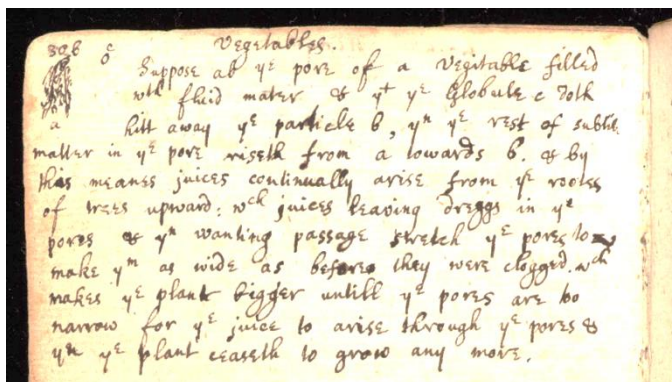 Vegetables.
Suppose ab yᵉ pore of a Vegitable filled
wᵗʰ fluid mater & yᵗ yᵉ Globule c doth
a hitt away yᵉ particle b, yⁿ yᵉ rest of subtile
matter in yᵉ pore riseth from a towards b. & by
this meanes juices continually arise from yᵉ roots
of trees upward: wᶜʰ juices leaving dreggs in yᵉ
pores & yⁿ wanting passage stretch yᵉ pores to
make yᵐ as wide as before they were clogged. wᶜʰ
makes yᵉ plant bigger untill yᵉ pores are too
narrow for yᵉ juice to arise through yᵉ pores &
yⁿ yᵉ plant ceaseth to grow any more.